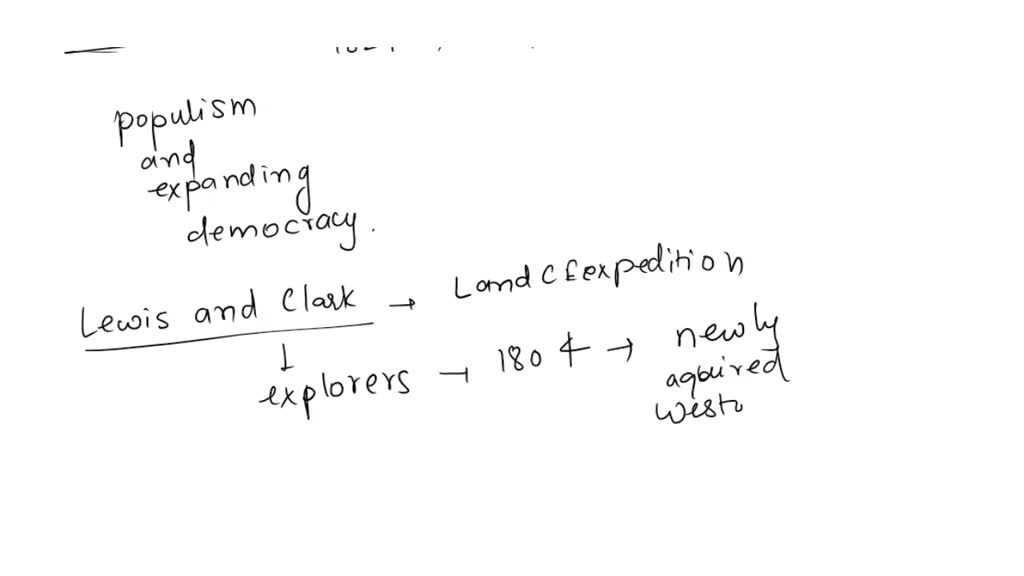 populism
and
expanding
democracy.
Lewis and Clark → L and C Expedition
↓
explorers → 1804 → newly
aqbuired
West